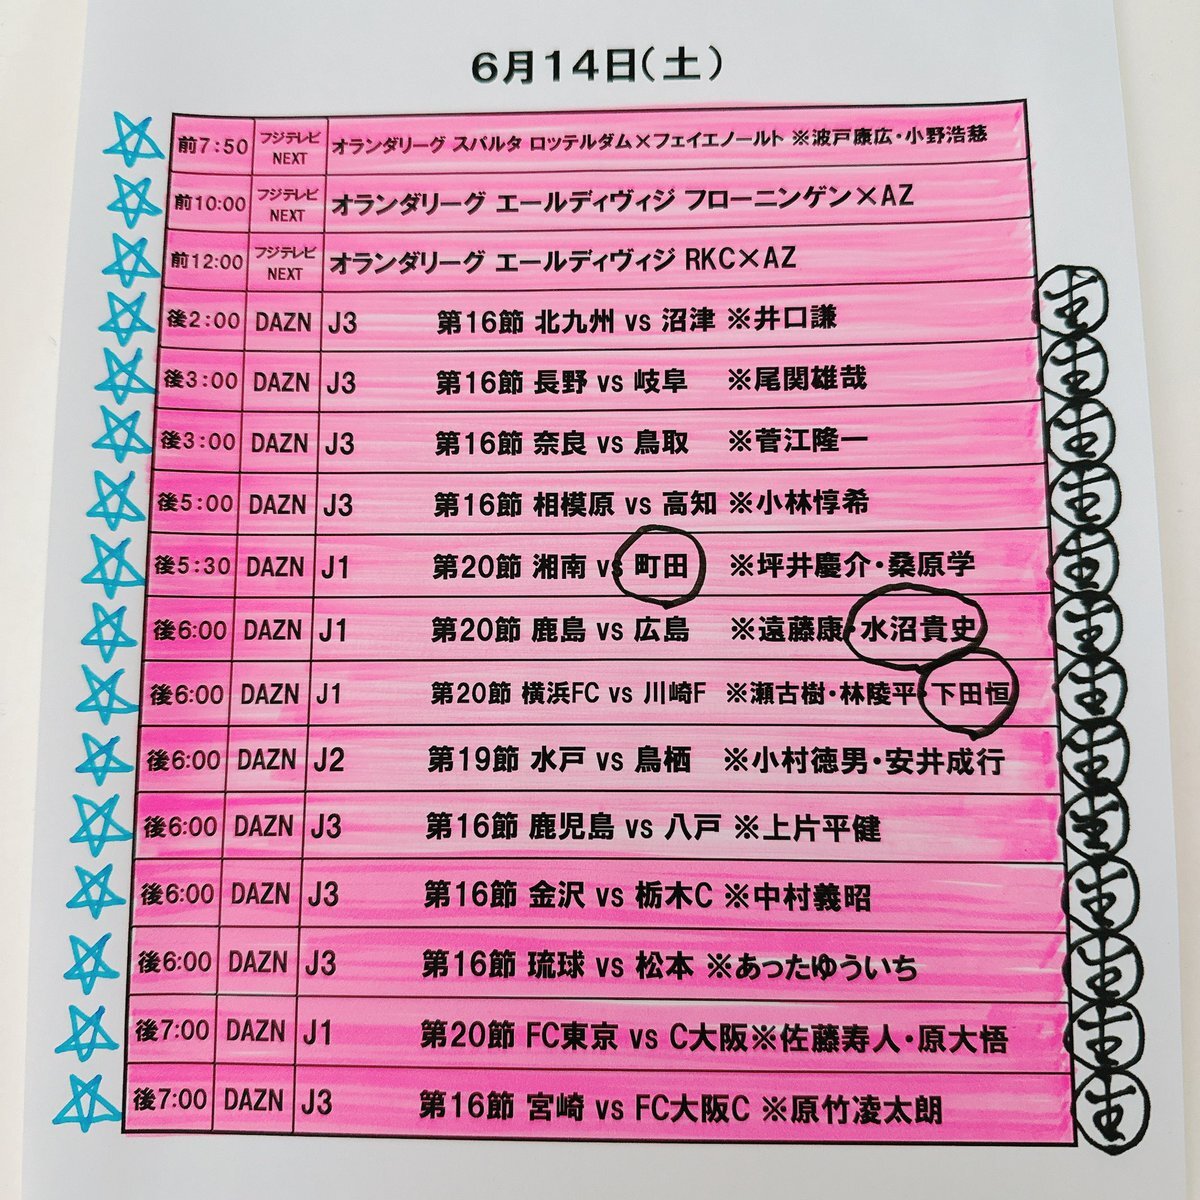 6月14日(土)
前7:50 フジテレビNEXT オランダリーグ スパルタ ロッテルダム×フェイエノールト ※波戸康広・小野浩慈
前10:00 フジテレビNEXT オランダリーグ エールディヴィジ フローニンゲン×AZ
前12:00 フジテレビNEXT オランダリーグ エールディヴィジ RKC×AZ
後2:00 DAZN J3 第16節 北九州 vs 沼津 ※井口謙 生
後3:00 DAZN J3 第16節 長野 vs 岐阜 ※尾関雄哉 生
後3:00 DAZN J3 第16節 奈良 vs 鳥取 ※菅江隆一 生
後5:00 DAZN J3 第16節 相模原 vs 高知 ※小林惇希 生
後5:30 DAZN J1 第20節 湘南 vs 町田 ※坪井慶介・桑原学 生
後6:00 DAZN J1 第20節 鹿島 vs 広島 ※遠藤康・水沼貴史 生
後6:00 DAZN J1 第20節 横浜FC vs 川崎F ※瀬古樹・林陵平・下田恒 生
後6:00 DAZN J2 第19節 水戸 vs 鳥栖 ※小村徳男・安井成行 生
後6:00 DAZN J3 第16節 鹿児島 vs 八戸 ※上片平健 生
後6:00 DAZN J3 第16節 金沢 vs 栃木C ※中村義昭 生
後6:00 DAZN J3 第16節 琉球 vs 松本 ※あったゆういち 生
後7:00 DAZN J1 第20節 FC東京 vs C大阪※佐藤寿人・原大悟 生
後7:00 DAZN J3 第16節 宮崎 vs FC大阪C ※原竹凌太朗 生